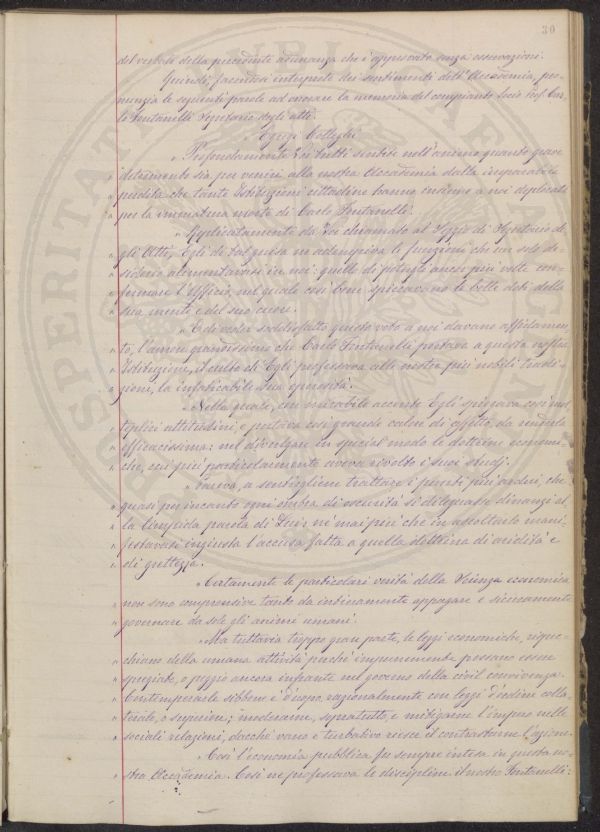 30
del verbale della precedente adunanza che è approvato senza osservazioni.
Quindi, facendosi interprete dei sentimenti dell'Accademia, pro-
nunzia le seguenti parole ad onorare la memoria del compianto Socio Prof. Car-
lo Fontanelli Segretario degli atti.
Egregi Colleghi
" Profondamente Voi tutti sentite nell'animo quanto grave
" detrimento sia per venirne alla nostra Accademia dalla irreparabile
" perdita che tante Istituzioni cittadine hanno insieme a noi deplorato
" per la immatura morte di Carlo Fontanelli.
" Replicatamente da Voi chiamato al Seggio di Segretario de-
" gli Atti, Egli di tal guisa ne adempiva le funzioni che un solo de-
" siderio alimentavasi in noi: quello di potergli ancor più volte con-
" fermare l'Ufficio, nel quale così bene spiccavano le belle doti della
" sua mente e del suo cuore.
" E di veder soddisfatto questo voto a noi davano affidamen-
" to, l'amore grandissimo che Carlo Fontanelli portava a questa nostra
" Istituzione, il culto che Egli professava alle nostre più nobili tradi-
" zioni, la infaticabile sua operosità.
" Nella quale, con mirabile accordo Egli spiegava così mol-
" teplici attitudini, e portava così grande calore di affetto, da renderla
" efficacissima: nel divulgare in special modo le dottrine economi-
" che, cui più particolarmente aveva rivolto i suoi studj.
" Pareva, a sentirgliene trattare i punti più ardui, che
" quasi per incanto ogni ombra di oscurità si dileguasse dinanzi al-
" la limpida parola di Lui; nè mai più che in ascoltarlo mani-
" festavasi ingiusta l'accusa fatta a quella dottrina di aridità e
" di grettezza.
" Certamente le particolari verità della Scienza economica
" non sono comprensive tanto da intieramente appagare e sicuramente
" governare da sole gli animi umani.
" Ma tuttavia troppo gran parte, le leggi economiche, rispec-
" chiano della umana attività perchè impunemente possano essere
" spregiate, o peggio ancora infrante nel governo della civil convivenza.
" Contemperarle sibbene è d'uopo razionalmente con leggi d'ordine colla-
" terale, o superiore; moderarne, sopratutto, e mitigarne l'impero nelle
" sociali relazioni, dacchè vano e turbativo riesce il contrastarne l'azione.
" Così l'economia pubblica fu sempre intesa in questa no-
" stra Accademia. Così ne professava le discipline il nostro Fontanelli:
PROSPERITATI PUBLICAE AUGENDAE